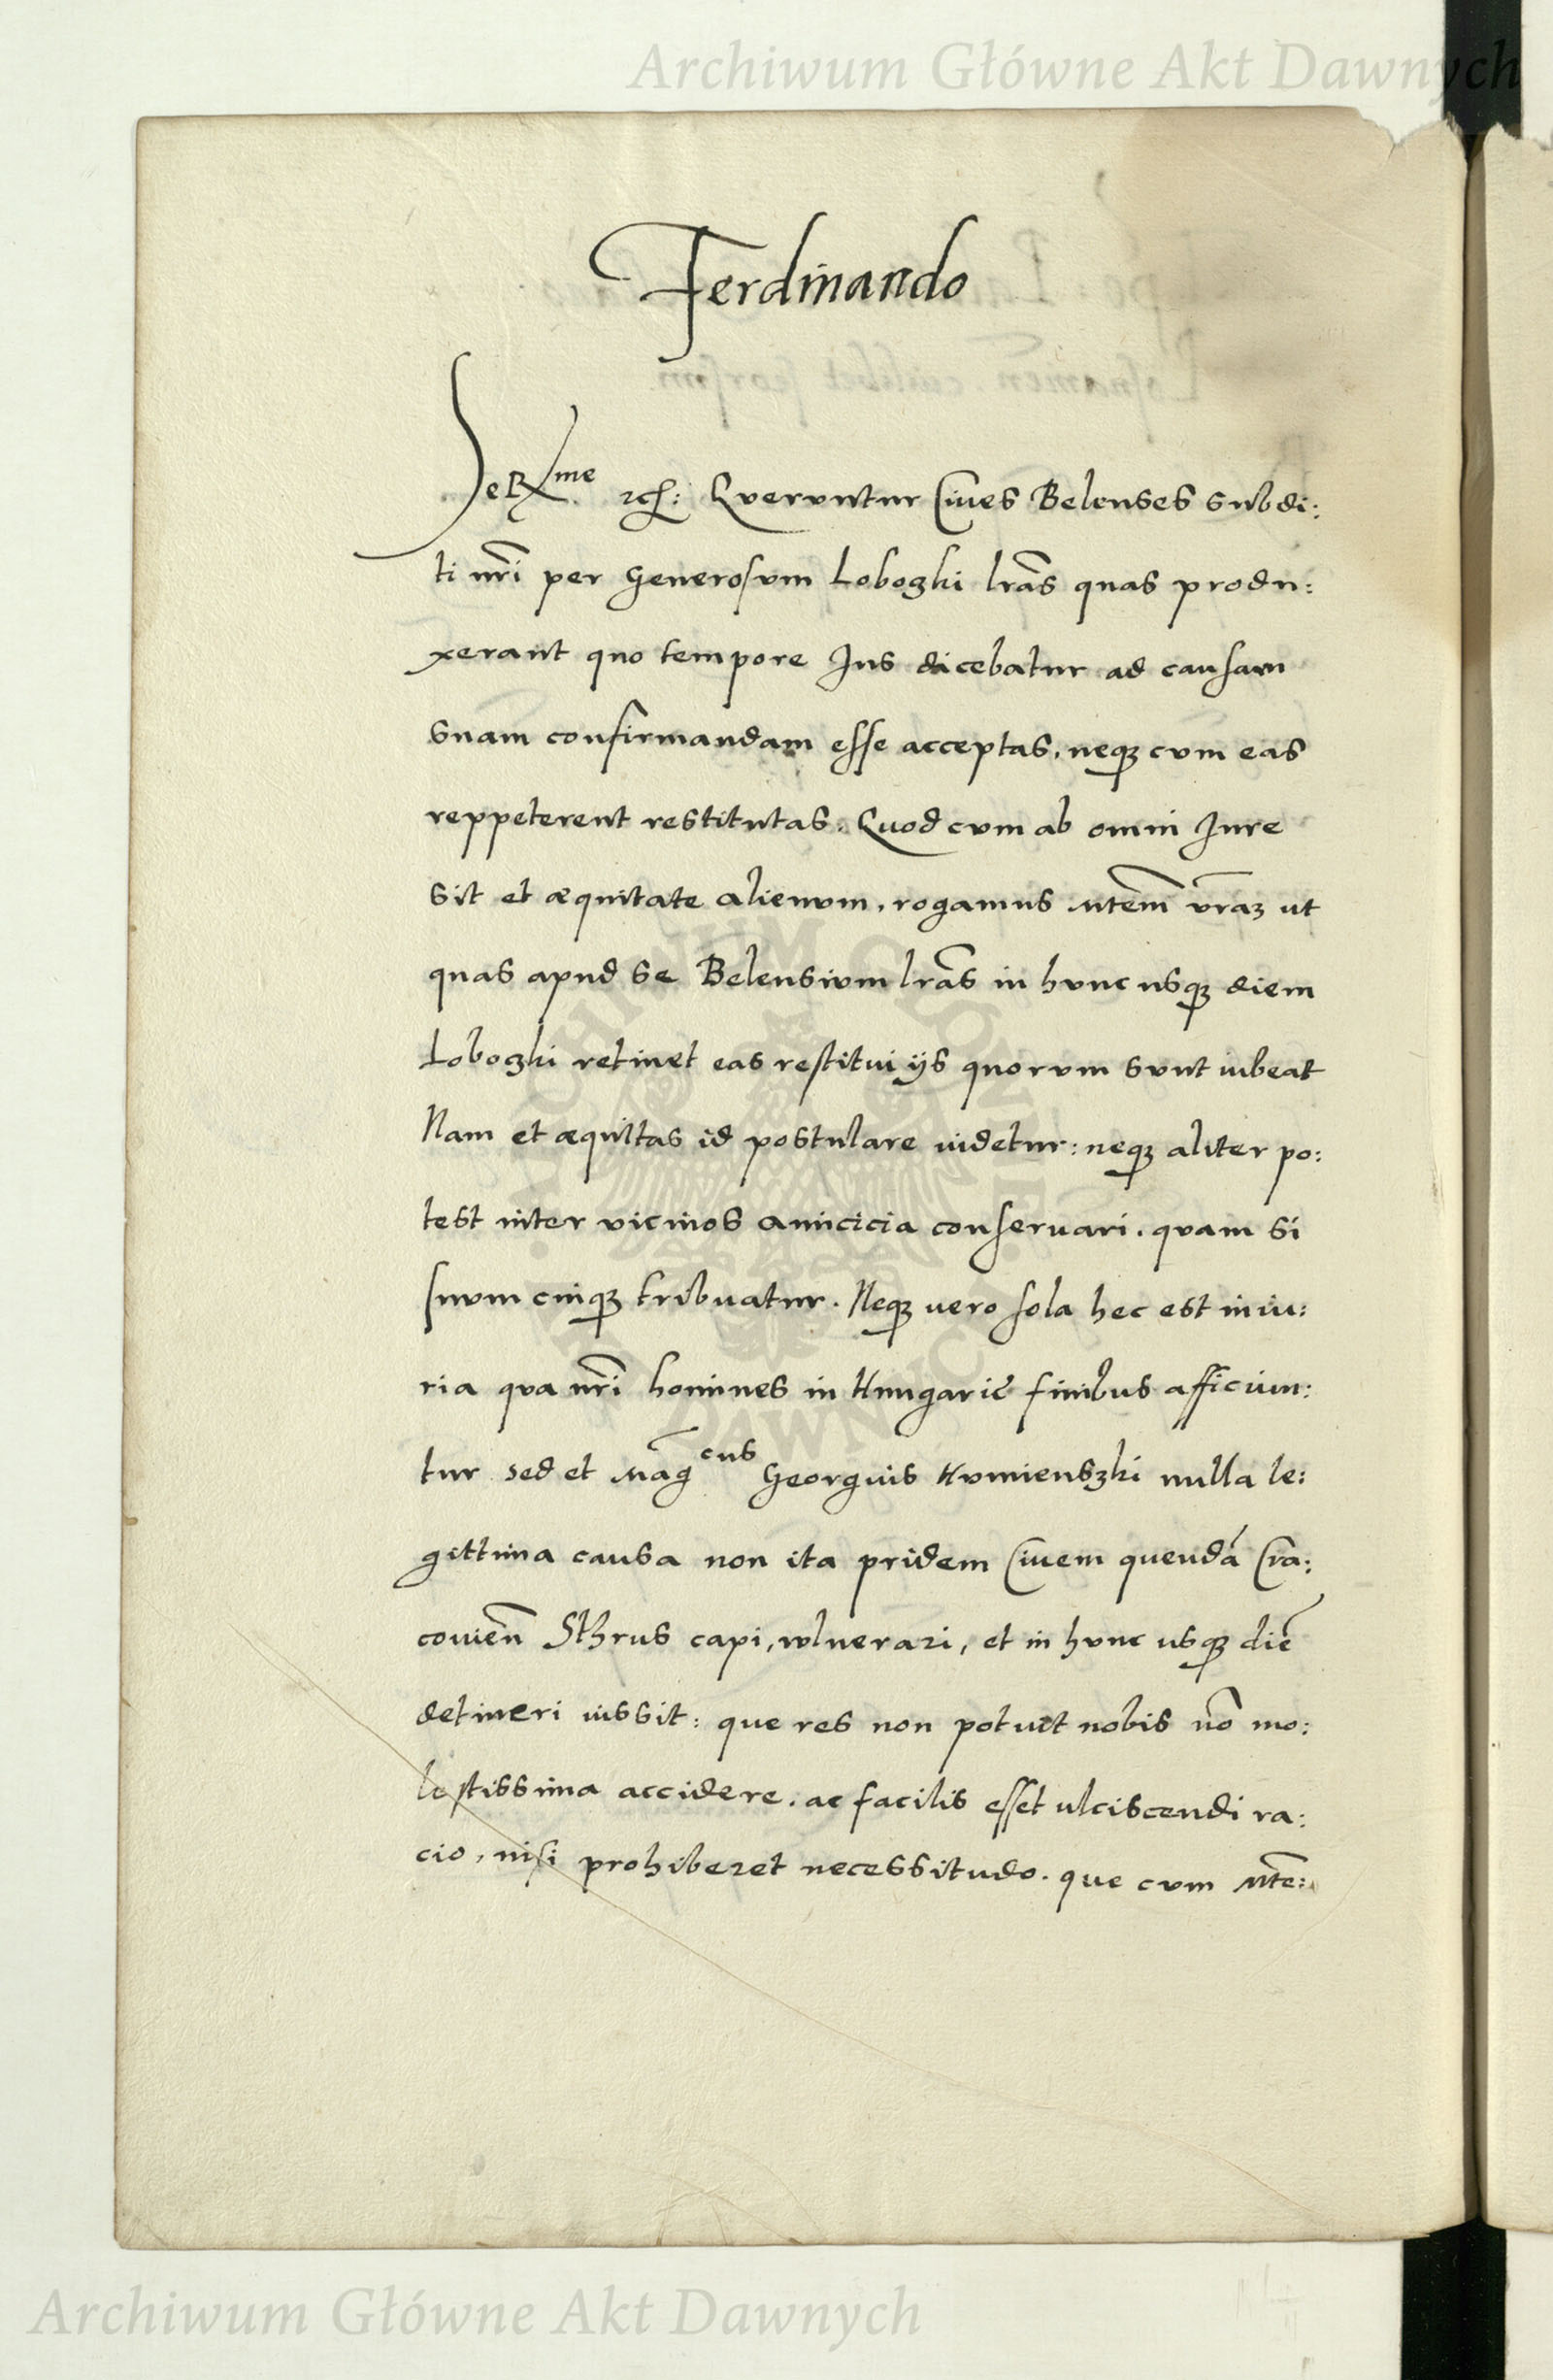 Archiwum Główne Akt Dawnych
Ferdinando
Serme etc: Queruntur Ciues Belenses subdi:
ti nri per Generosum Lobozki lras quas produ:
xerant quo tempore Jus dicebatur ad causam
suam confirmandam esse acceptas, neque cum eas
reppeterent restitutas. Quod cum ab omni Jure
sit et æquitate alienum, rogamus Mtem vram ut
quas apud se Belensium lras in hunc usque diem
Lobozki retinet eas restitui ijs quorum sunt iubeat
Nam et æquitas id postulare uidetur: neque aliter po:
test inter vicinos amicicia conseruari. quam si
suum cuique tribuatur. Neque uero sola hec est iniu:
ria qua nri homines in Hungarie finibus afficiun:
tur sed et Magcus Georgius Humienszki nulla le:
gittima causa non ita pridem Ciuem quendã Cra:
couien Sthrus capi, vulnerari, et in hunc usque diẽ
detineri iussit: que res non potuit nobis nõ mo:
lestissima accidere. ac facilis esset ulciscendi ra:
cio, nisi prohiberet necessitudo. que cum Mte:
ARCHIWUM GŁÓWNE AKT DAWNYCH
Archiwum Główne Akt Dawnych